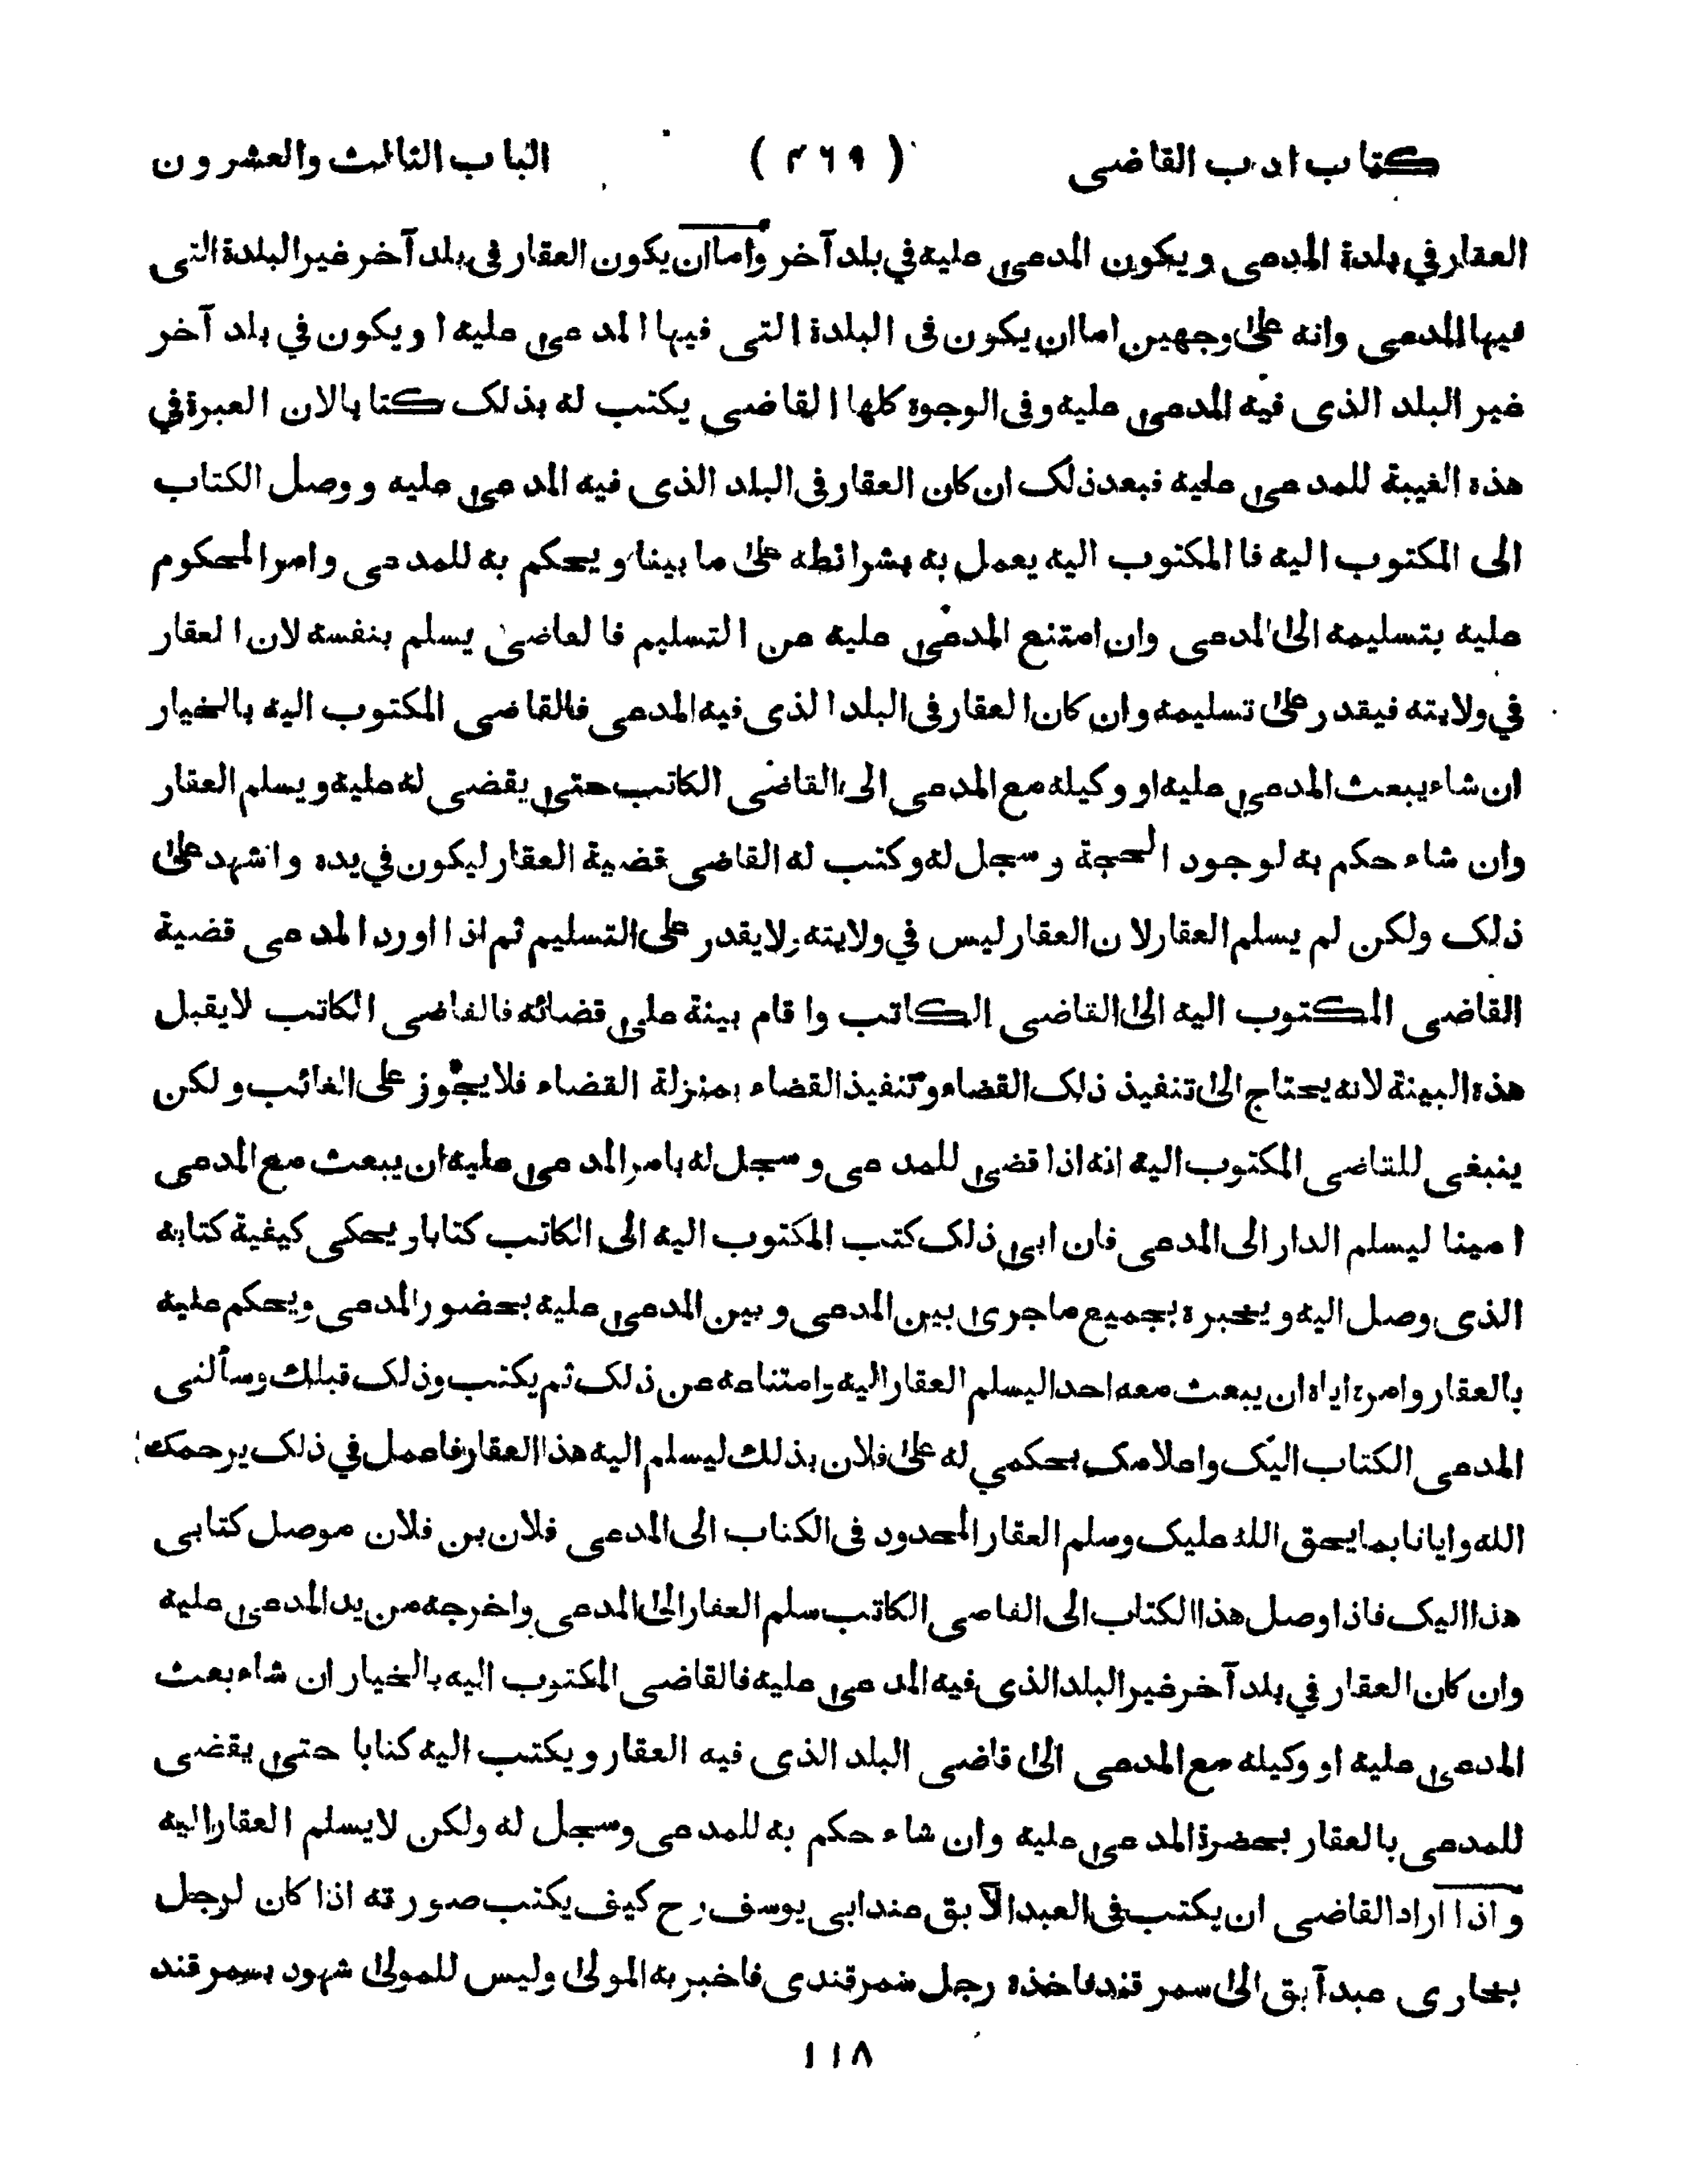 كتاب ادب القاضى (٤٦٩) الباب الثالث والعشرون
العقار في بلدة المدعى ويكون المدعى عليه في بلد آخر واما ان يكون العقار فى بلد آخر غير البلدة التى
فيها المدعى وانه على وجهين اما ان يكون فى البلدة التى فيها المدعى عليه او يكون في بلد آخر
غير البلد الذى فيه المدعى عليه وفى الوجوه كلها القاضى يكتب له بذلك كتابا لان العبرة في
هذه الغيبة للمدعى عليه فبعد ذلك ان كان العقار فى البلد الذى فيه المدعى عليه ووصل الكتاب
الى المكتوب اليه فا المكتوب اليه يعمل به بشرائطه على ما بينا ويحكم به للمدعى وامر المحكوم
عليه بتسليمه الى المدعى وان امتنع المدعى عليه عن التسليم فالقاضى يسلم بنفسه لان العقار
في ولايته فيقدر على تسليمه وان كان العقار فى البلد الذى فيه المدعى فالقاضى المكتوب اليه بالخيار
ان شاء يبعث المدعى عليه او وكيله مع المدعى الى القاضى الكاتب حتى يقضى له عليه ويسلم العقار
وان شاء حكم به لوجود الحجة وسجل له وكتب له القاضى قضية العقار ليكون في يده واشهد على
ذلك ولكن لم يسلم العقار لان العقار ليس في ولايته ولا يقدر على التسليم ثم اذا اورد المدعى قضية
القاضى المكتوب اليه الى القاضى الكاتب واقام بينة على قضائه فالقاضى الكاتب لا يقبل
هذه البينة لانه يحتاج الى تنفيذ ذلك القضاء وتنفيذ القضاء بمنزلة القضاء فلا يجوز على الغائب ولكن
ينبغى للقاضى المكتوب اليه انه اذا قضى للمدعى وسجل له يامر المدعى عليه ان يبعث مع المدعى
امينا ليسلم الدار الى المدعى فان ابى ذلك كتب المكتوب اليه الى الكاتب كتابا ويحكى كيفية كتابه
الذى وصل اليه ويخبره بجميع ماجرى بين المدعى وبين المدعى عليه بحضور المدعى ويحكم عليه
بالعقار وامره اياه ان يبعث معه احدا ليسلم العقار اليه وامتناعه عن ذلك ثم يكتب وذلك قبلك وسألنى
المدعى الكتاب اليك واعلامك بحكمي له على فلان بذلك ليسلم اليه هذا العقار فاعمل في ذلك يرحمك
الله وايانا بما يحق الله عليك وسلم العقار المحدود فى الكتاب الى المدعى فلان بن فلان موصل كتابى
هذا اليك فاذا وصل هذا الكتاب الى القاضى الكاتب سلم العقار الى المدعى واخرجه من يد المدعى عليه
وان كان العقار في بلد آخر غير البلد الذى فيه المدعى عليه فالقاضى المكتوب اليه بالخيار ان شاء بعث
المدعى عليه او وكيله مع المدعى الى قاضى البلد الذى فيه العقار ويكتب اليه كتابا حتى يقضى
للمدعى بالعقار بحضرة المدعى عليه وان شاء حكم به للمدعى وسجل له ولكن لا يسلم العقار اليه
واذا اراد القاضى ان يكتب فى العبد الآبق عند ابى يوسف رح كيف يكتب صورته اذا كان لرجل
بخارى عبد آبق الى سمرقند فاخذه رجل سمرقندى فاخبر به المولى وليس للمولى شهود بسمرقند
١١٨